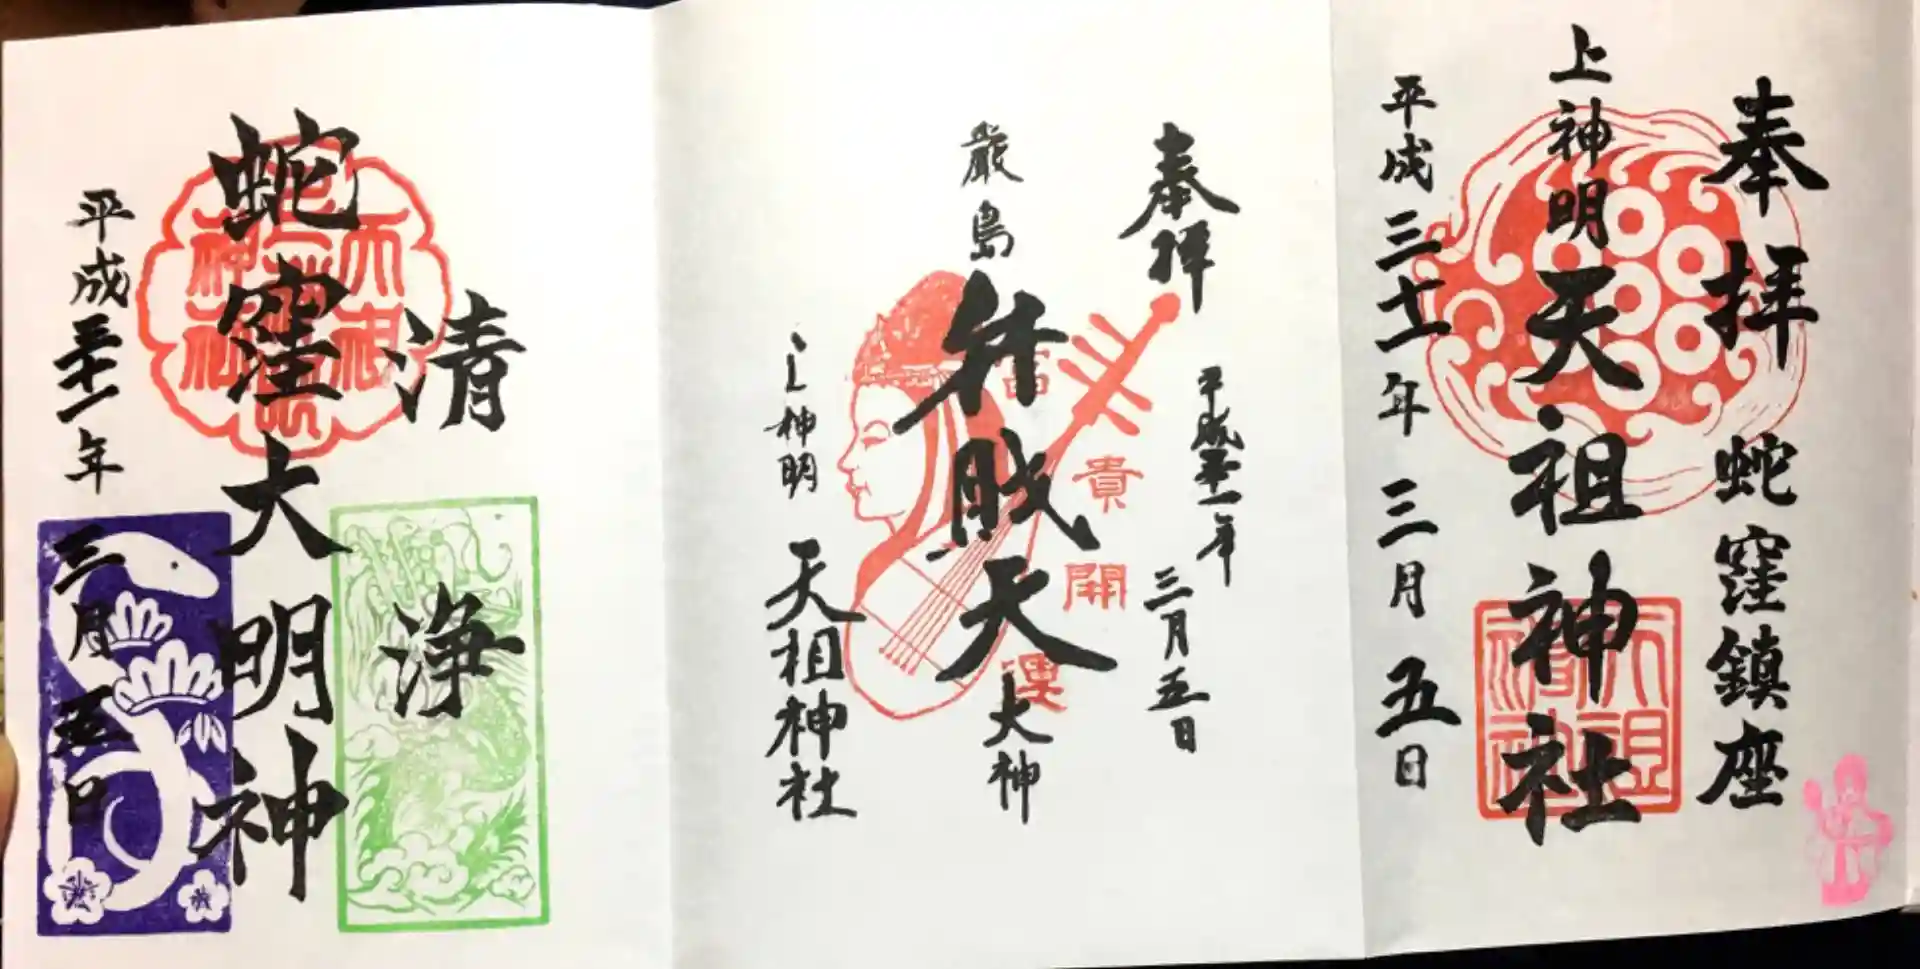 奉拝 蛇窪鎮座
上神明天祖神社
平成三十一年 三月 五日
奉拝
平成三十一年 三月五日
厳島弁財天大神
富貴開運
上神明 天祖神社
清浄
蛇窪大明神
平成三十一年 三月五日
天祖神社